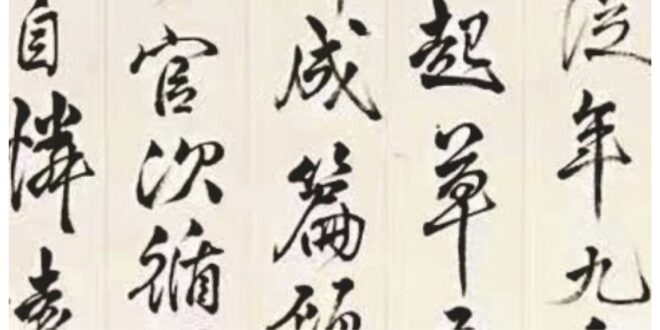 泛年九
起草
成篇
官次循
自憐